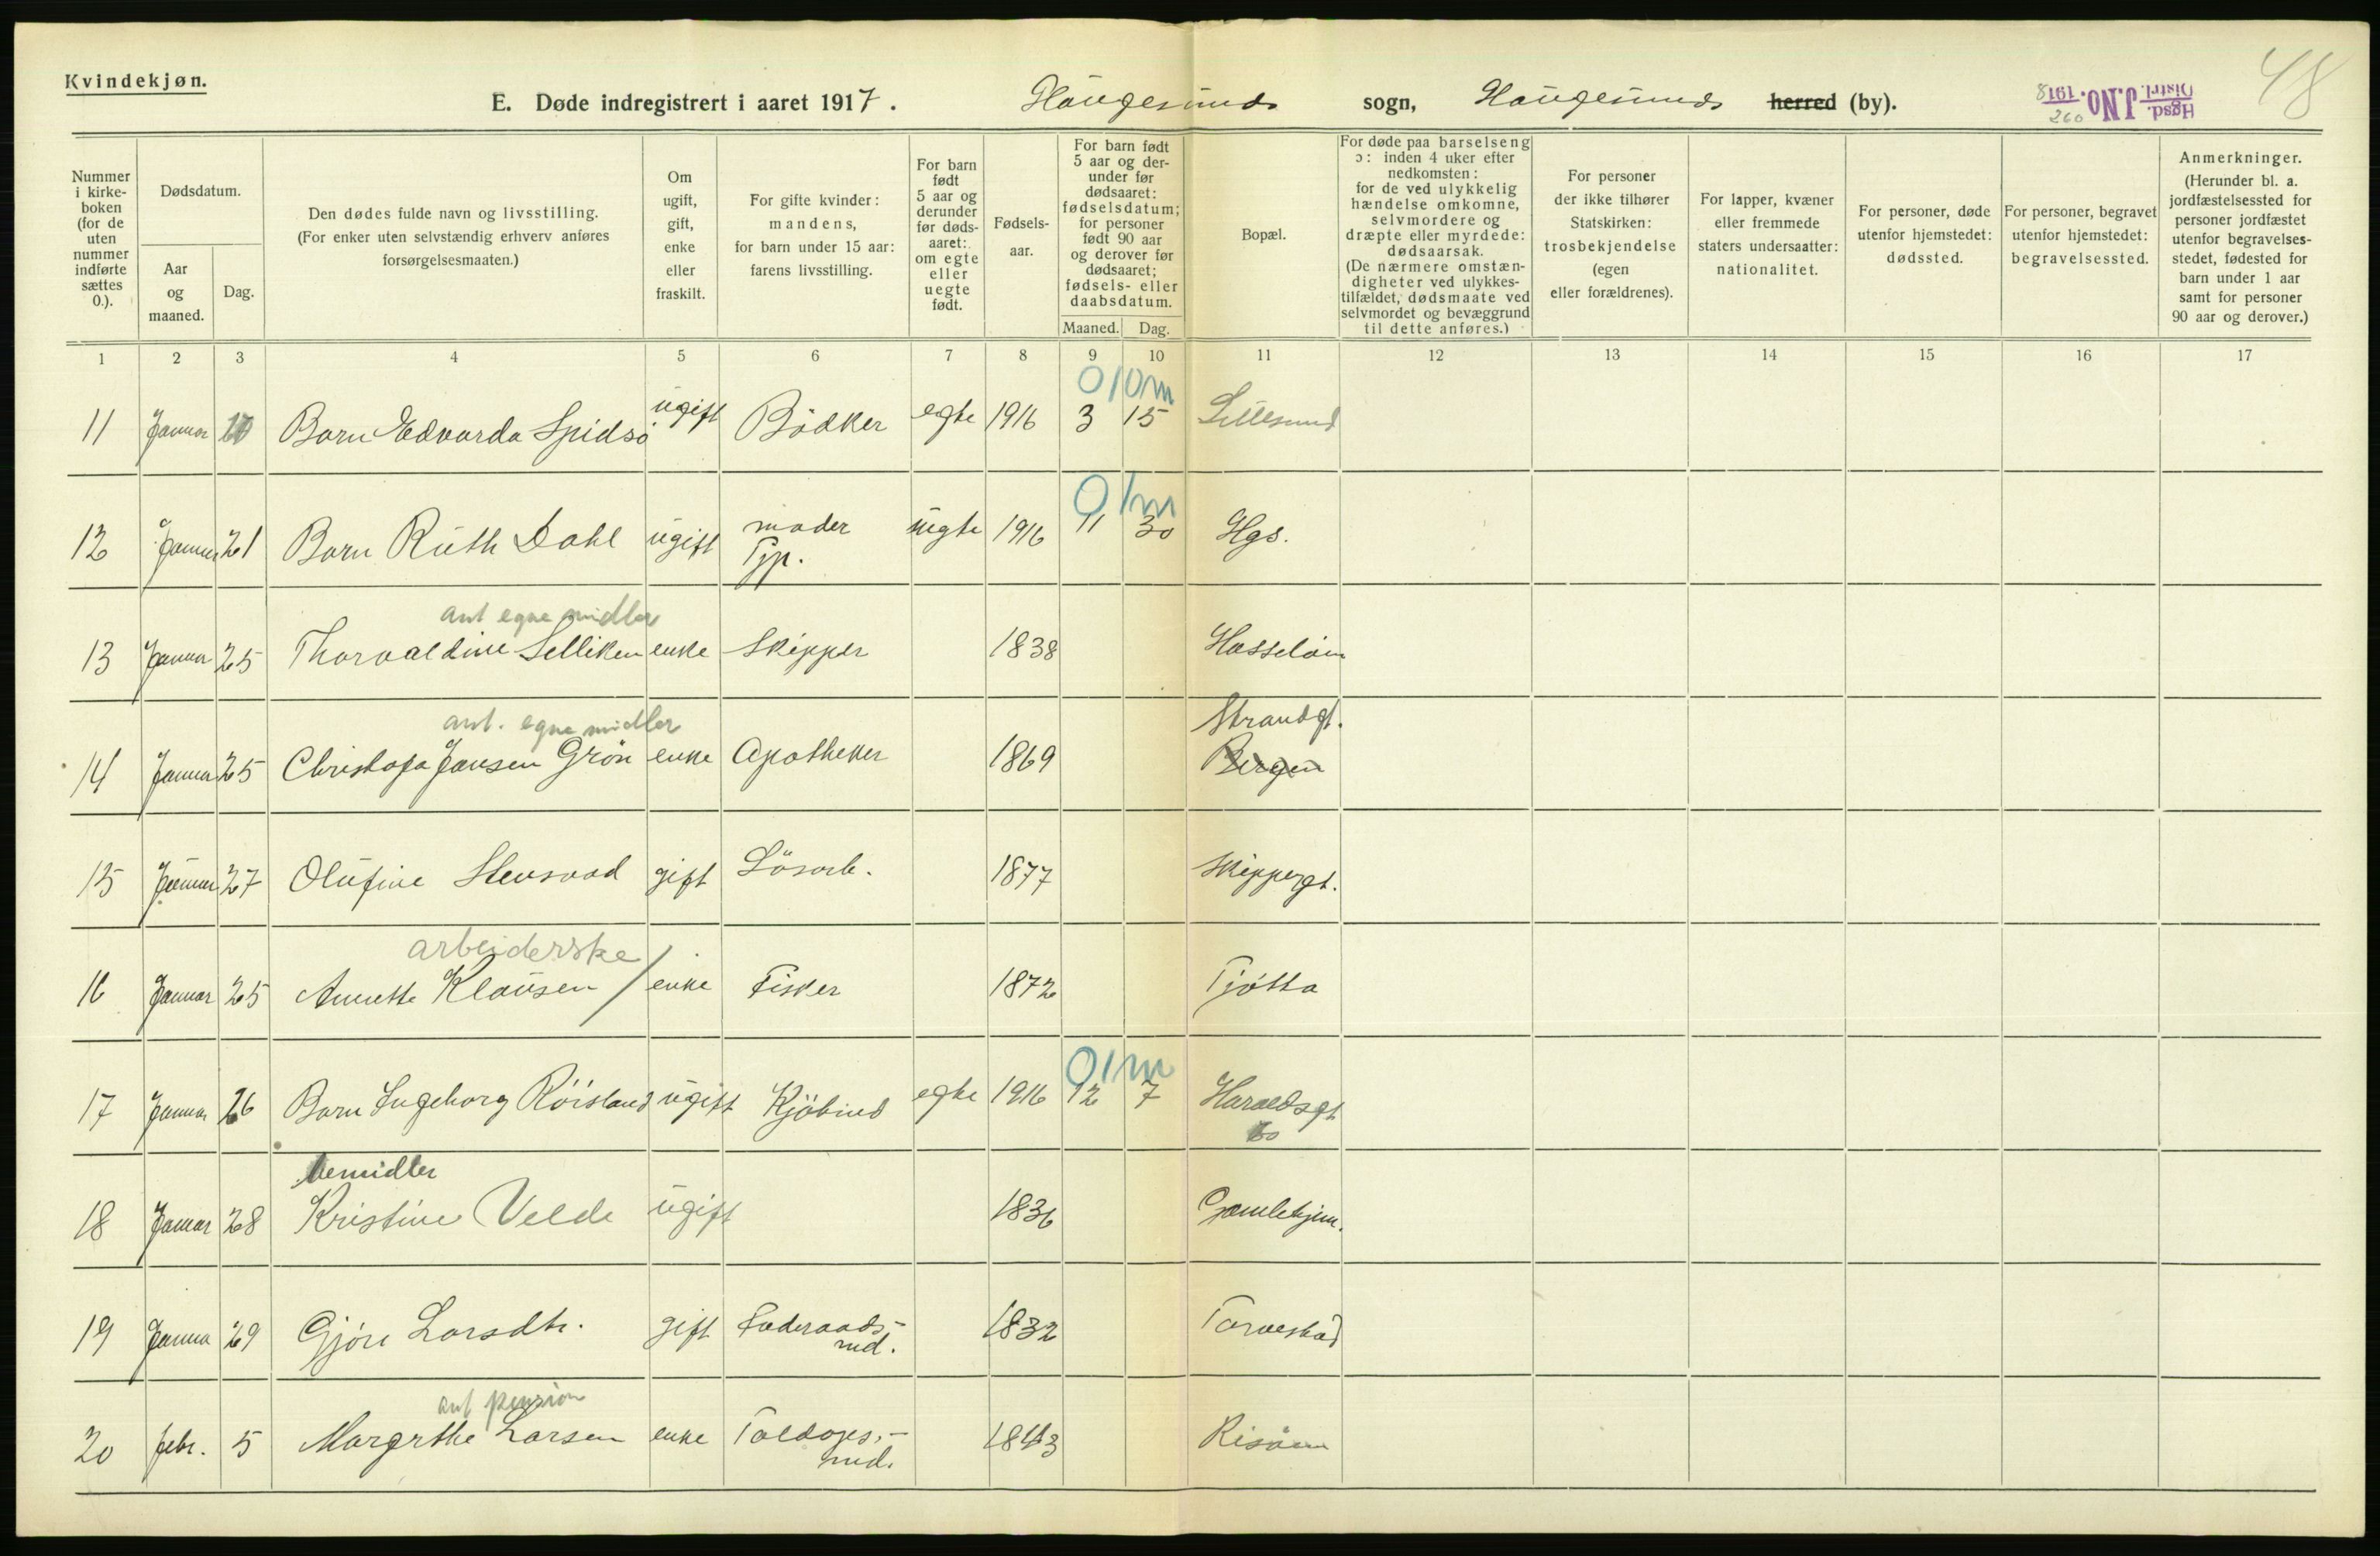 Kvindekjøn.
E. Døde indregistrert i aaret 1917. Haugesunds sogn, Haugesunds herred (by).
Hgsd. Distr. J.No. 260 1918
48
Nummer i kirkeboken (for de uten nummer indførte sættes 0.).
Dødsdatum.
Aar og maaned.
Dag.
Den dødes fulde navn og livsstilling. (For enker uten selvstændig erhverv anføres forsørgelsesmaaten.)
Om ugift, gift, enke eller fraskilt.
For gifte kvinder: mandens, for barn under 15 aar: farens livsstilling.
For barn født 5 aar og derunder før dødsaaret: om egte eller uegte født.
Fødselsaar.
For barn født 5 aar og derunder før dødsaaret: fødselsdatum; for personer født 90 aar og derover før dødsaaret; fødsels- eller daabsdatum.
Maaned. Dag.
Bopæl.
For døde paa barselseng ɔ: inden 4 uker efter nedkomsten: for de ved ulykkelig hændelse omkomne, selvmordere og dræpte eller myrdede: dødsaarsak. (De nærmere omstændigheter ved ulykkestilfældet, dødsmaate ved selvmordet og bevæggrund til dette anføres.)
For personer der ikke tilhører Statskirken: trosbekjendelse (egen eller forældrenes).
For lapper, kvæner eller fremmede staters undersaatter: nationalitet.
For personer, døde utenfor hjemstedet: dødssted.
For personer, begravet utenfor hjemstedet: begravelsessted.
Anmerkninger. (Herunder bl. a. jordfæstelsessted for personer jordfæstet utenfor begravelsesstedet, fødested for barn under 1 aar samt for personer 90 aar og derover.)
1 2 3 4 5 6 7 8 9 10 11 12 13 14 15 16 17
0 10m
11 Januar 20 Barn Edvarda Spidsö ugift Bödker egte 1916 3 15 Lillesund
0 1m
12 Januar 21 Barn Ruth Dahl ugift moder Tjp. uegte 1916 11 30 Hgs.
ant egne midler
13 Januar 25 Thorvaldine Selliken enke Skipper 1838 Hasseløen
ant. egne midler
14 Januar 25 Christofa Jansen Grön enke Apotheker 1869 Strandgt. Bergen
15 Januar 27 Olufine Stensvad gift Lösarb. 1877 Skippergt.
arbeiderske
16 Januar 25 Annette Klausen / enke Fisker 1872 Tjøtta
0 1m
17 Januar 26 Barn Ingeborg Röisland ugift Kjöbmd egte 1916 12 7 Haraldsgt
bemidler
18 Januar 28 Kristine Velde ugift 1836 Gamlehjem.
19 Janua 29 Gjöri Larsdtr. gift Föderaads-md. 1832 Torvestad
ant pension
20 febr. 5 Margrthe Larsen enke Toldops.-md. 1843 Risöen